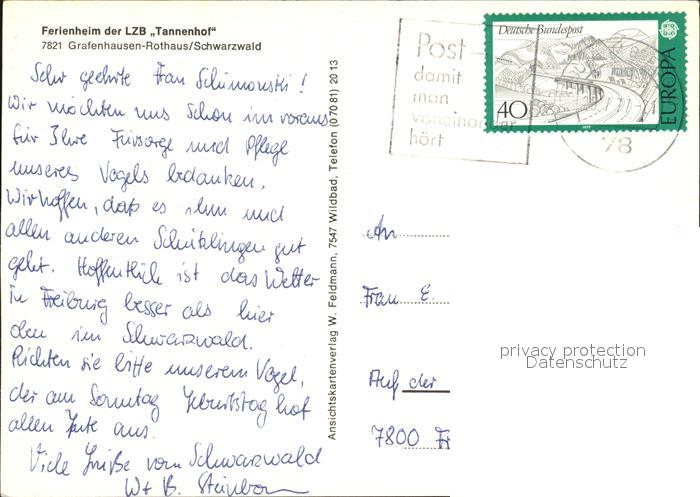 Ferienheim der LZB „Tannenhof"
7821 Grafenhausen-Rothaus/Schwarzwald
Sehr geehrte Frau Schimonski!
Wir möchten uns schon im voraus
für Ihre Fürsorge und Pflege
unseres Vogels bedanken.
Wir hoffen, daß es ihm und
allen anderen Schützlingen gut
geht. Hoffentlich ist das Wetter
in Freiburg besser als hier
oben im Schwarzwald.
Richten sie bitte unserem Vogel,
der am Sonntag Geburtstag hat
alles Gute aus.
Viele Grüße vom Schwarzwald
W + B.
Ansichtskartenverlag W. Feldmann, 7547 Wildbad, Telefon (070 81) 20 13
Post
damit
man
voneinander
hört
Deutsche Bundespost
EUROPA
40
78
An
Frau E.
Auf der
7800 Fr
privacy protection
Datenschutz